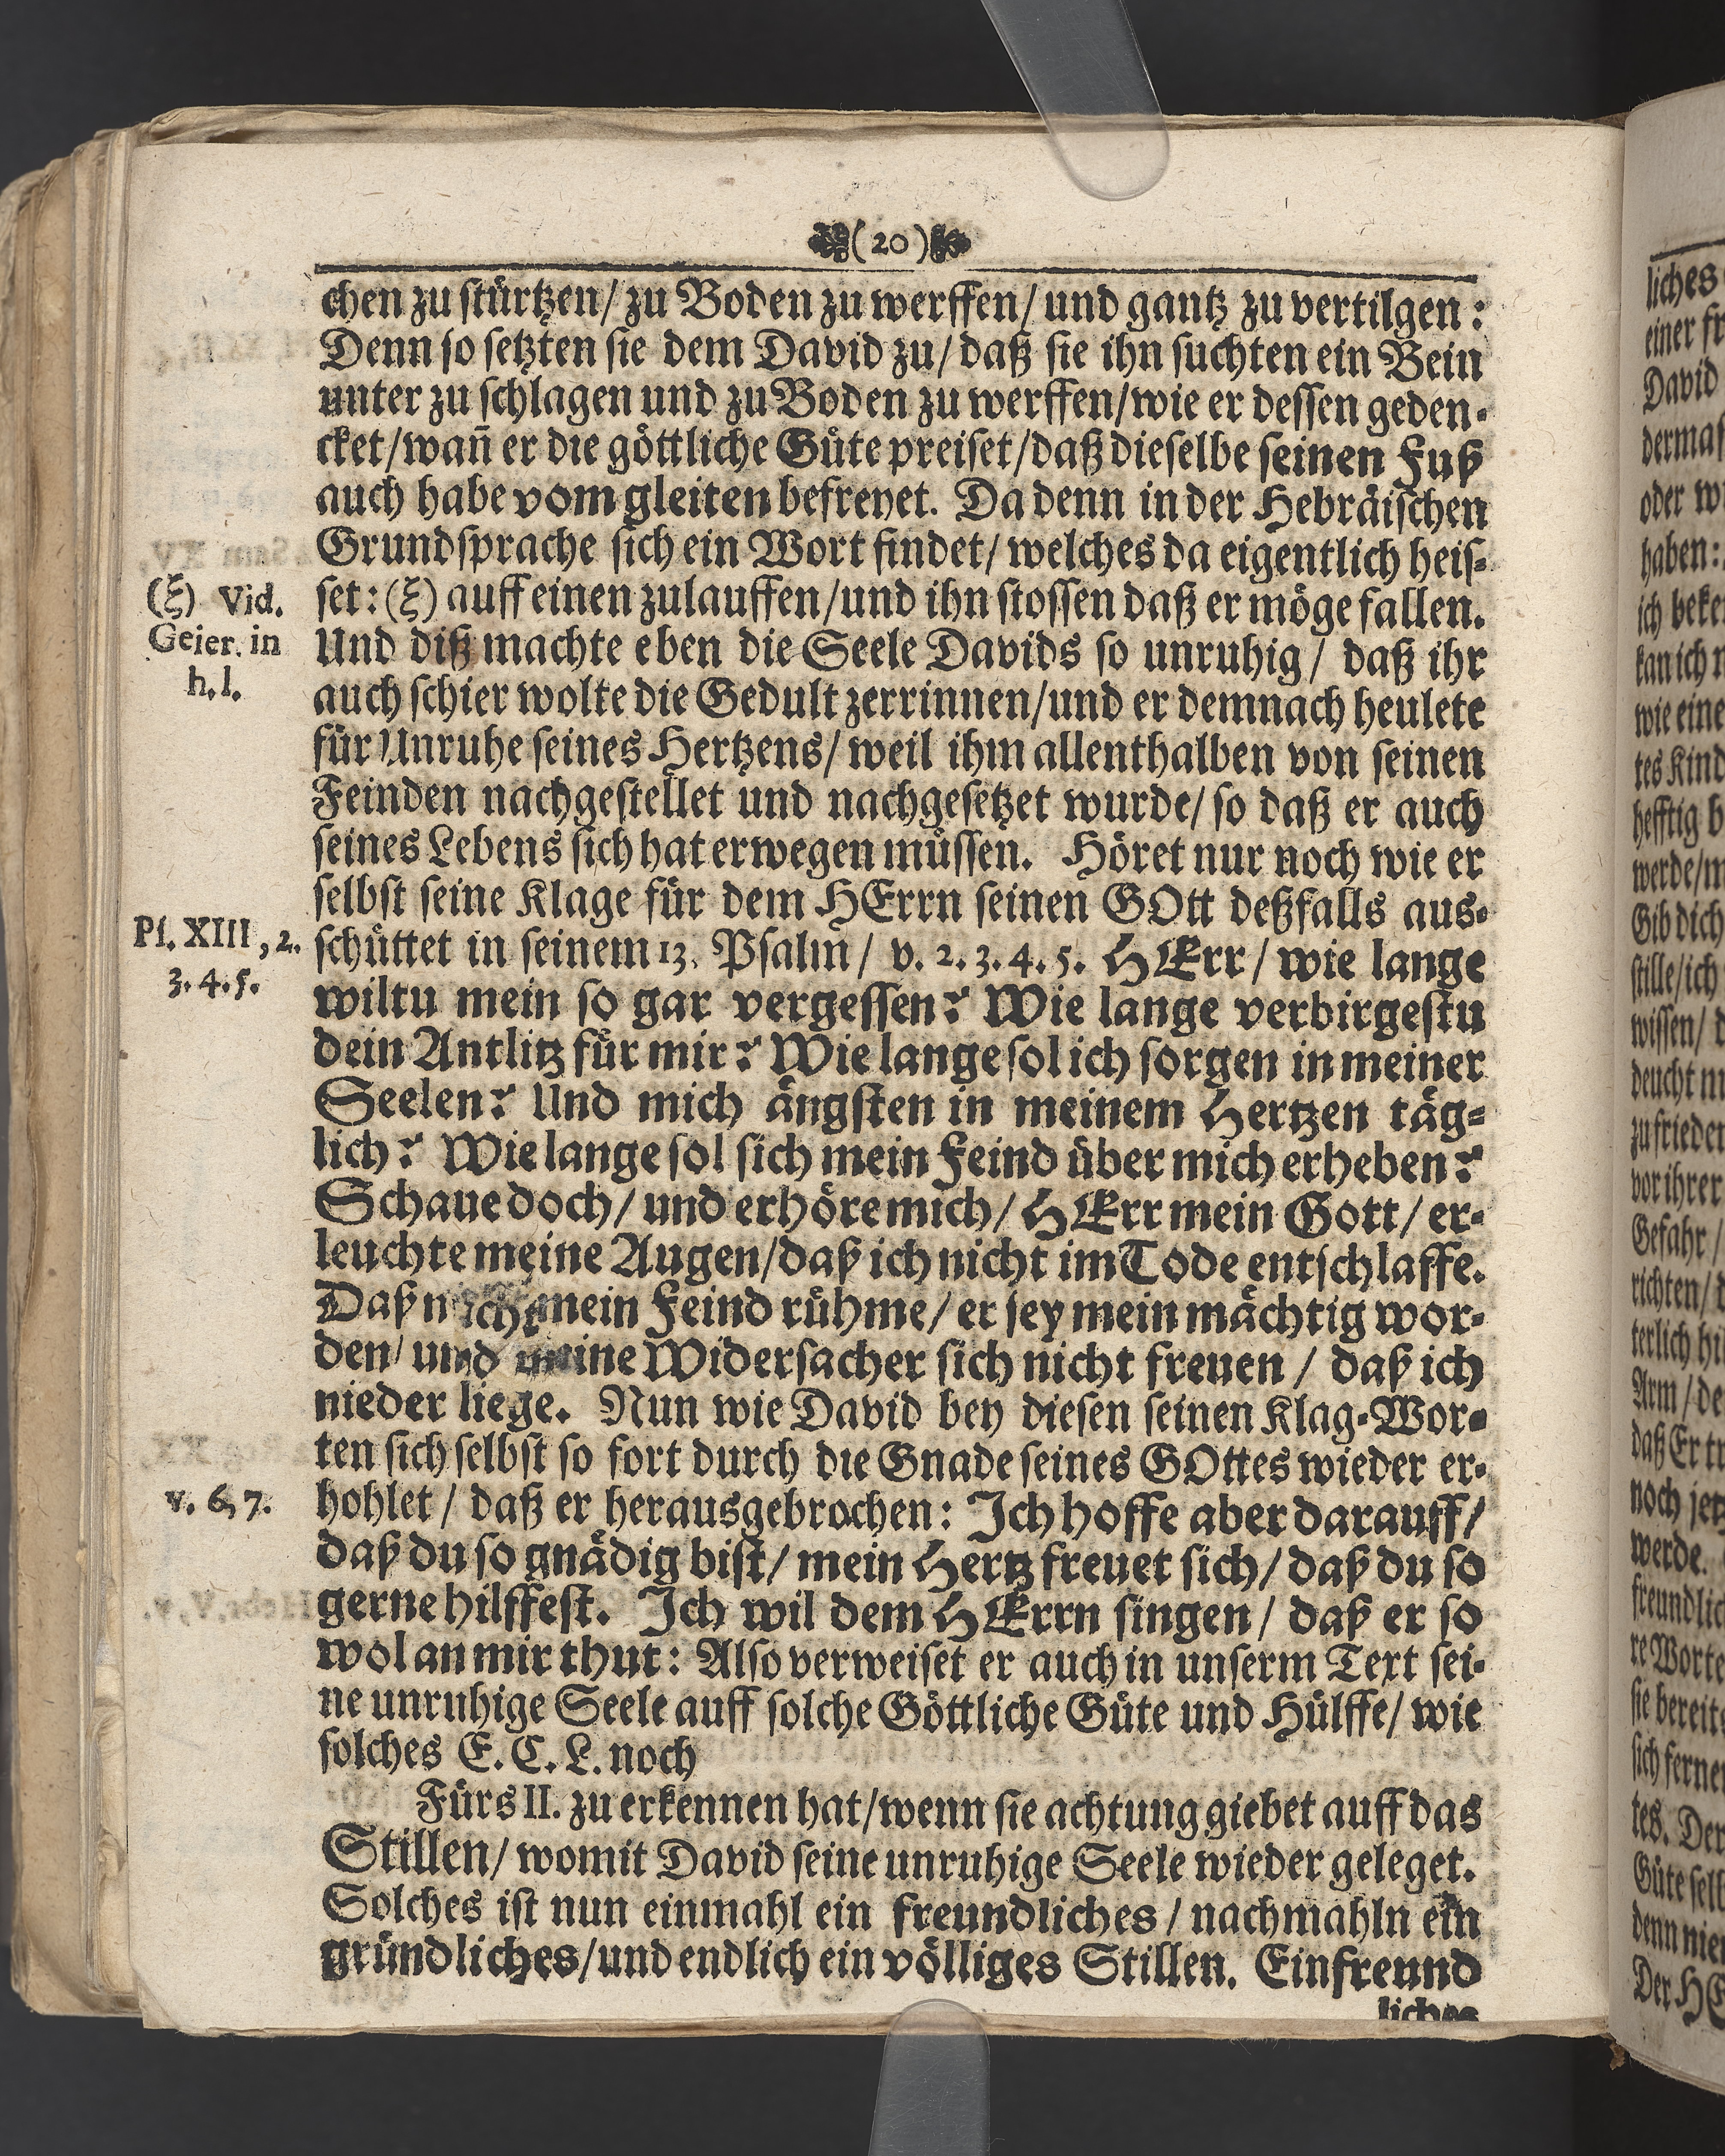 (20)
chen zu stürtzen/ zu Boden zu werffen/ und gantz zu vertilgen:
Denn so setzten sie dem David zu/ daß sie ihn suchten ein Bein
unter zu schlagen und zu Boden zu werffen/ wie er dessen geden-
cket/ wañ er die göttliche Güte preiset/ daß dieselbe seinen Fuß
auch habe vom gleiten befreyet. Da denn in der Hebräischen
Grundsprache sich ein Wort findet/ welches da eigentlich heis-
(ξ) Vid.
Geier. in
h. l.
set: (ξ) auff einen zulauffen/ und ihn stossen daß er möge fallen.
Und diß machte eben die Seele Davids so unruhig/ daß ihr
auch schier wolte die Gedult zerrinnen/ und er demnach heulete
für Unruhe seines Hertzens/ weil ihm allenthalben von seinen
Feinden nachgestellet und nachgesetzet wurde/ so daß er auch
seines Lebens sich hat erwegen müssen. Höret nur noch wie er
selbst seine Klage für dem HErrn seinen GOtt deßfalls aus-
Ps. XIII, 2.
3. 4. 5.
schüttet in seinem 13. Psalm/ v. 2. 3. 4. 5. HErr/ wie lange
wiltu mein so gar vergessen? Wie lange verbirgestu
dein Antlitz für mir? Wie lange sol ich sorgen in meiner
Seelen? Und mich ängsten in meinem Hertzen täg-
lich? Wie lange sol sich mein Feind über mich erheben?
Schaue doch/ und erhöre mich/ HErr mein Gott/ er-
leuchte meine Augen/ daß ich nicht im Tode entschlaffe.
Daß nicht mein Feind rühme/ er sey mein mächtig wor-
den/ und meine Widersacher sich nicht freuen/ daß ich
nieder liege. Nun wie David bey diesen seinen Klag-Wor-
ten sich selbst so fort durch die Gnade seines GOttes wieder er-
v. 6, 7.
hohlet/ daß er herausgebrochen: Ich hoffe aber darauff/
daß du so gnädig bist/ mein Hertz freuet sich/ daß du so
gerne hilffest. Ich wil dem HErrn singen/ daß er so
wol an mir thut: Also verweiset er auch in unserm Text sei-
ne unruhige Seele auff solche Göttliche Güte und Hülffe/ wie
solches E. C. L. noch
Fürs II. zu erkennen hat/ wenn sie achtung giebet auff das
Stillen/ womit David seine unruhige Seele wieder geleget.
Solches ist nun einmahl ein freundliches/ nachmahln ein
gründliches/ und endlich ein völliges Stillen. Ein freund
liches
liches
einer
David
oder
haben:
ich
kan ich
wie eine
tes Kind
hefftig
werde/
Gib dich
stille/ ich
wissen/
deucht
zu frieden
vor ihrer
Gefahr/
richten/
terlich
Arm/
daß Er
noch
werde.
re Worte
sie bereits
tes. Der
Güte
denn
Der